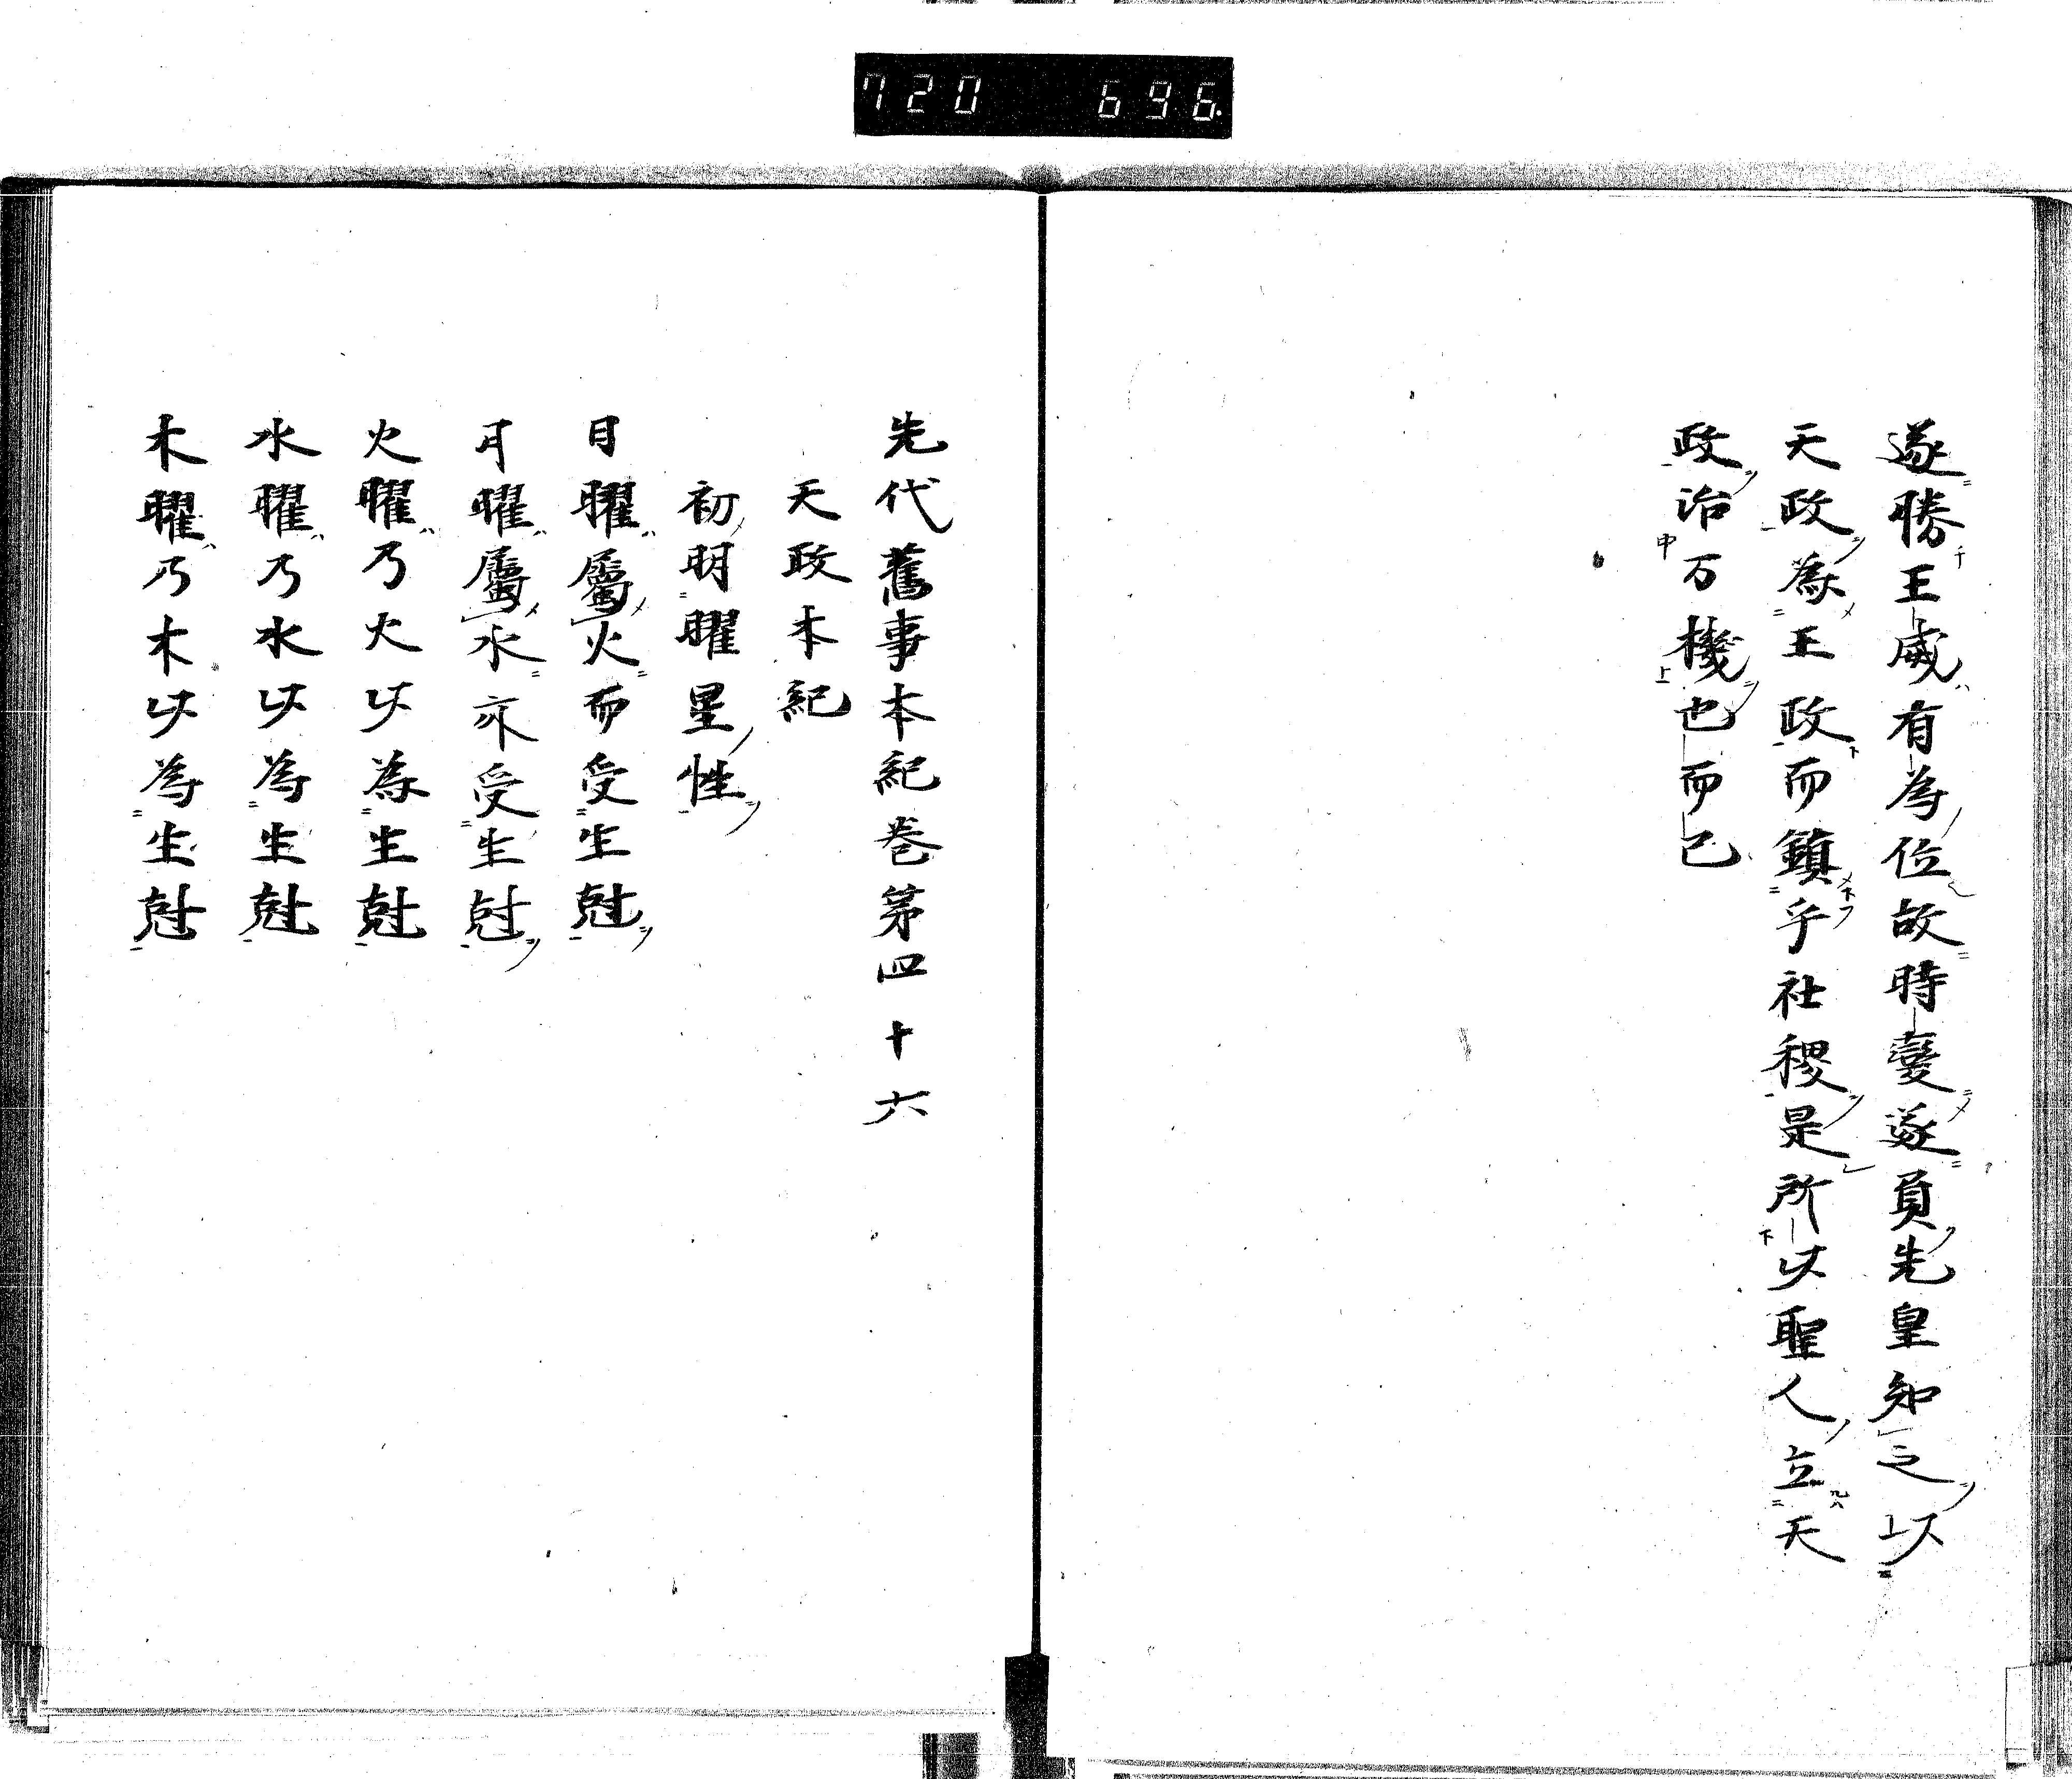 720 696
遂勝王威有為位故時變遂負先皇知之以
天政為王政而鎮乎社稷是所以聖人立天
政治万機也而已
先代舊事本紀巻第四十六
天政本紀
初明曜星性
日曜屬火而受生尅
月曜屬水亦受生尅
火曜乃火以為生尅
水曜乃水以為生尅
木曜乃木以為生尅